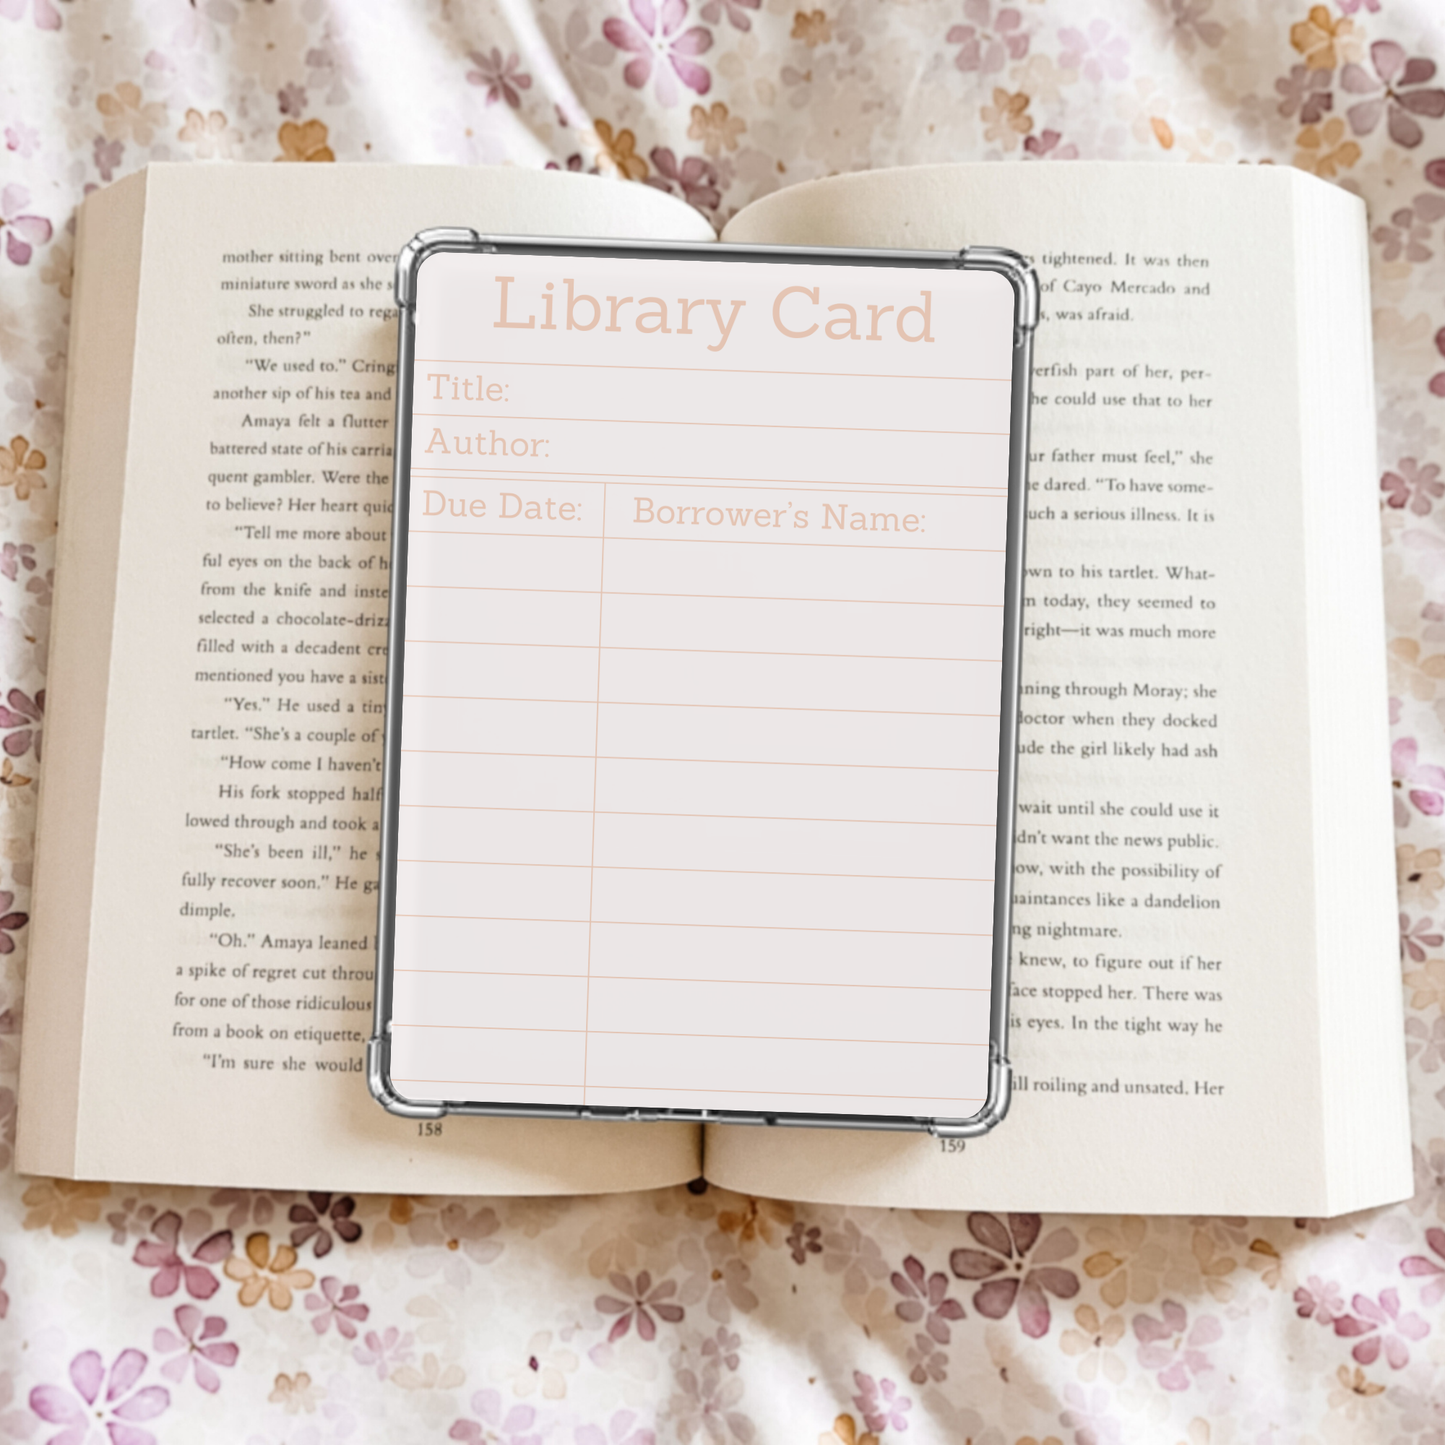 Library Card
Title:
Author:
Due Date: Borrower's Name:
mother sitting bent over
miniature sword as she
She struggled to
often, then?"
"We used to."
another sip of his tea and
Amaya felt a flutter
battered state of his
quent gambler. Were the
to believe? Her heart
"Tell me more about
ful eyes on the back of
from the knife and
selected a
filled with a decadent
mentioned you have a
"Yes." He used a
tartlet. "She's a couple of
"How come I haven't
His fork stopped
lowed through and took a
"She's been ill," he
fully recover soon." He
dimple.
"Oh." Amaya leaned
a spike of regret cut
for one of those ridiculous
from a book on etiquette,
"I'm sure she would
158
tightened. It was then
of Cayo Mercado and
was afraid.
part of her, per-
he could use that to her
father must feel," she
dared. "To have some-
such a serious illness. It is
to his tartlet. What-
today, they seemed to
right—it was much more
through Moray; she
doctor when they docked
the girl likely had ash
wait until she could use it
want the news public.
with the possibility of
like a dandelion
nightmare.
knew, to figure out if her
stopped her. There was
eyes. In the tight way he
roiling and unsated. Her
159